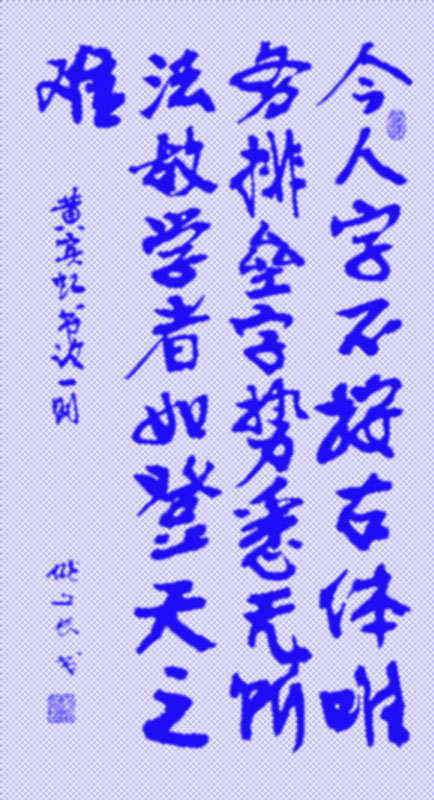 今人字不按古体唯
务排垒字势悉无所
法教学者如登天之
难
黄宾虹书一则